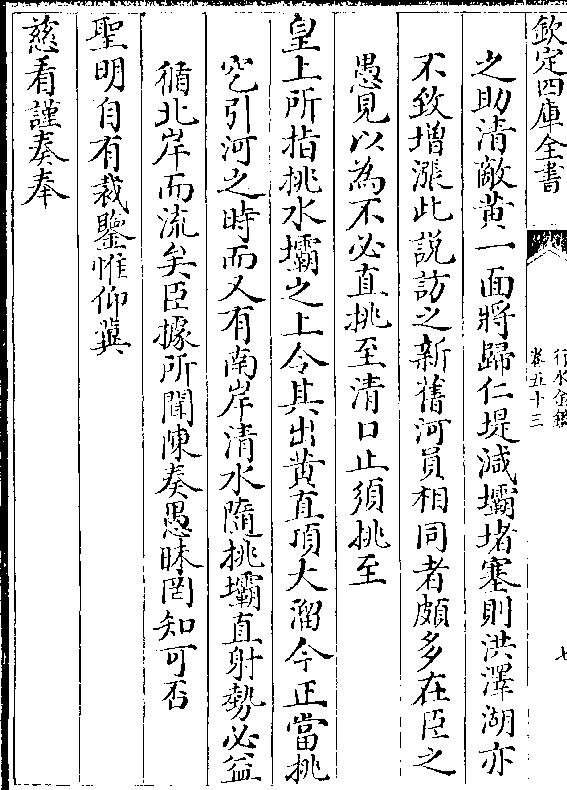 欽定四庫全書
行水金鑑
卷五十三
七
之助清敵黃一面將歸仁堤減壩堵塞則洪澤湖亦
不致增漲此説訪之新舊河員相同者頗多在臣之
愚見以為不必直挑至清口止須挑至
皇上所指挑水壩之上令其出黃直頂大溜今正當挑
空引河之時而又有南岸清水隨挑壩直射勢必益
循北岸而流矣臣據所聞陳奏愚昧罔知可否
聖明自有裁鑒惟仰冀
慈看謹奏奉